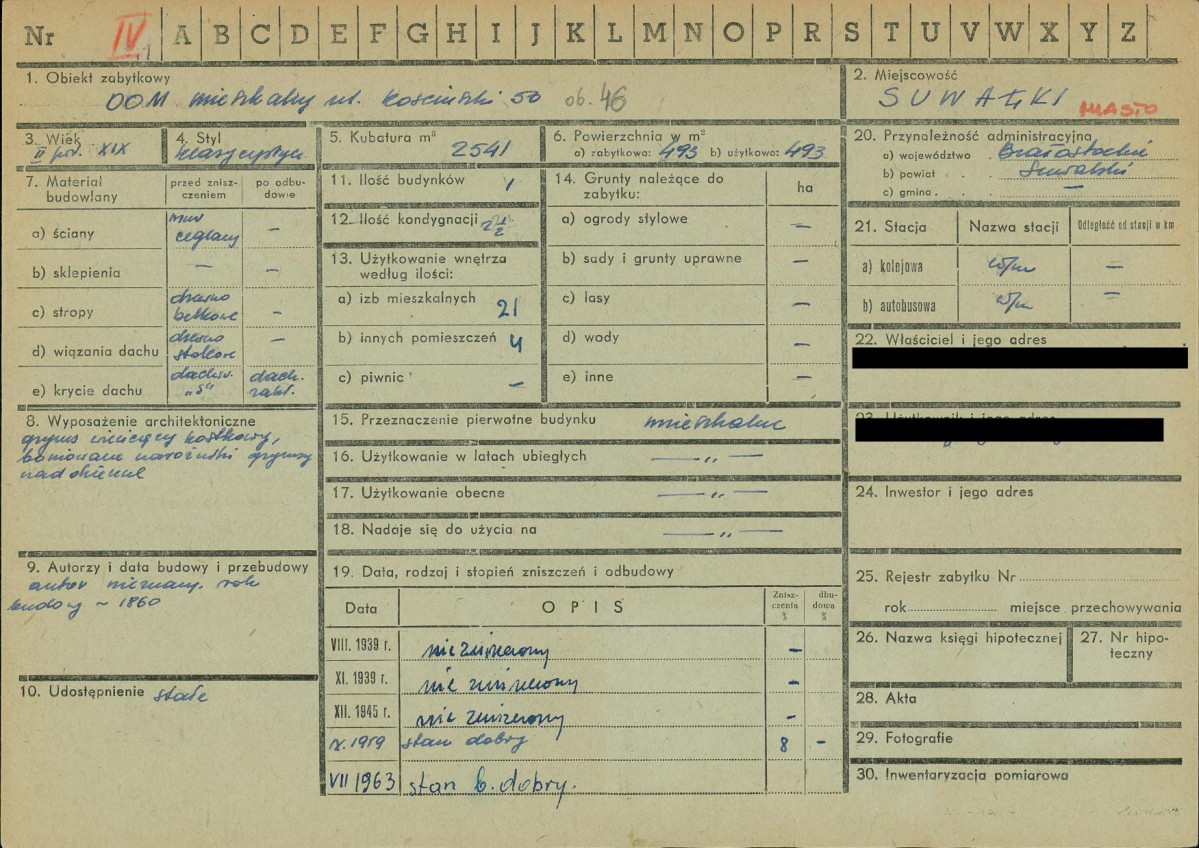 Nr IV A B C D E F G H I J K L M N O P R S T U V W X Y Z
1. Obiekt zabytkowy
DOM mieszkalny ul. Kościuszki 50 ob. 46
2. Miejscowość
SUWAŁKI
MIASTO
3. Wiek
II poł. XIX
4. Styl
klasycystycz.
5. Kubatura m³
2541
6. Powierzchnia w m²
a) zabytkowa: 493 b) użytkowa: 493
7. Materiał budowlany
przed zniszczeniem
po odbudowie
a) ściany
mur
ceglany —
b) sklepienia — —
c) stropy
drewno
belkowe —
d) wiązania dachu
drewno
stolcowe —
e) krycie dachu
dachów. dach.
„S"
8. Wyposażenie architektoniczne
gzyms wieńczący kostkowy,
boniowane narożniki gzymsy
nadokienne
9. Autorzy i data budowy i przebudowy
autor nieznany. rok
budowy ~ 1860
10. Udostępnienie stałe
11. Ilość budynków 1
12. Ilość kondygnacji
13. Użytkowanie wnętrza
według ilości:
a) izb mieszkalnych 21
b) innych pomieszczeń 4
c) piwnic —
14. Grunty należące do
zabytku:
ha
a) ogrody stylowe —
b) sady i grunty uprawne —
c) lasy —
d) wody —
e) inne —
15. Przeznaczenie pierwotne budynku mieszkalne
16. Użytkowanie w latach ubiegłych — „ —
17. Użytkowanie obecne — „ —
18. Nadaje się do użycia na — „ —
19. Data, rodzaj i stopień zniszczeń i odbudowy
Data OPIS Zniszczenia % dbudowa %
VIII. 1939 r. niezniszczony —
XI. 1939 r. nie zniszczony —
XII. 1945 r. nie zniszczony —
IX. 1959 stan dobry 8 —
VII 1963 stan b. dobry.
20. Przynależność administracyjna
a) województwo Białostockie
b) powiat Suwalski
c) gmina —
21. Stacja Nazwa stacji Odległość od stacji w km
a) kolejowa w/m —
b) autobusowa w/m —
22. Właściciel i jego adres
23. Użytkownik i jego adres
24. Inwestor i jego adres
25. Rejestr zabytku Nr
rok miejsce przechowywania
26. Nazwa księgi hipotecznej
27. Nr hipoteczny
28. Akta
29. Fotografie
30. Inwentaryzacja pomiarowa